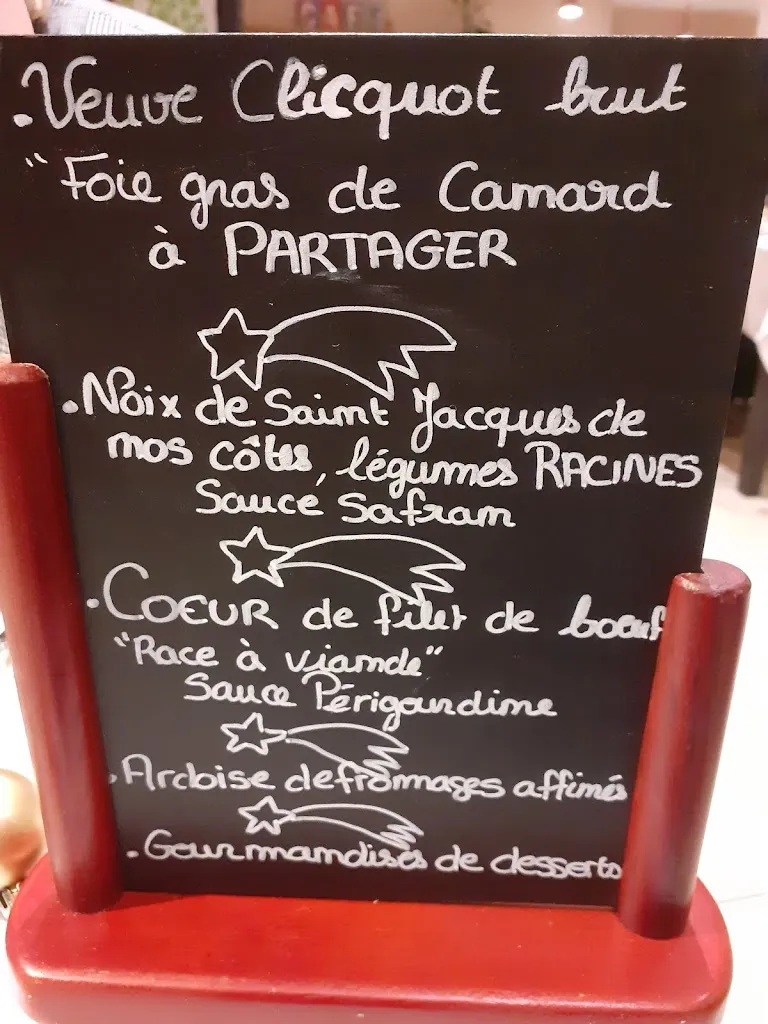 .Veuve Clicquot brut
"Foie gras de Canard
à PARTAGER
.Noix de Saint Jacques de
nos côtes, légumes RACINES
Sauce Safran
.COEUR de filet de boeuf
"Race à viande"
Sauce Périgourdine
.Ardoise de fromages affinés
.Gourmandises de desserts